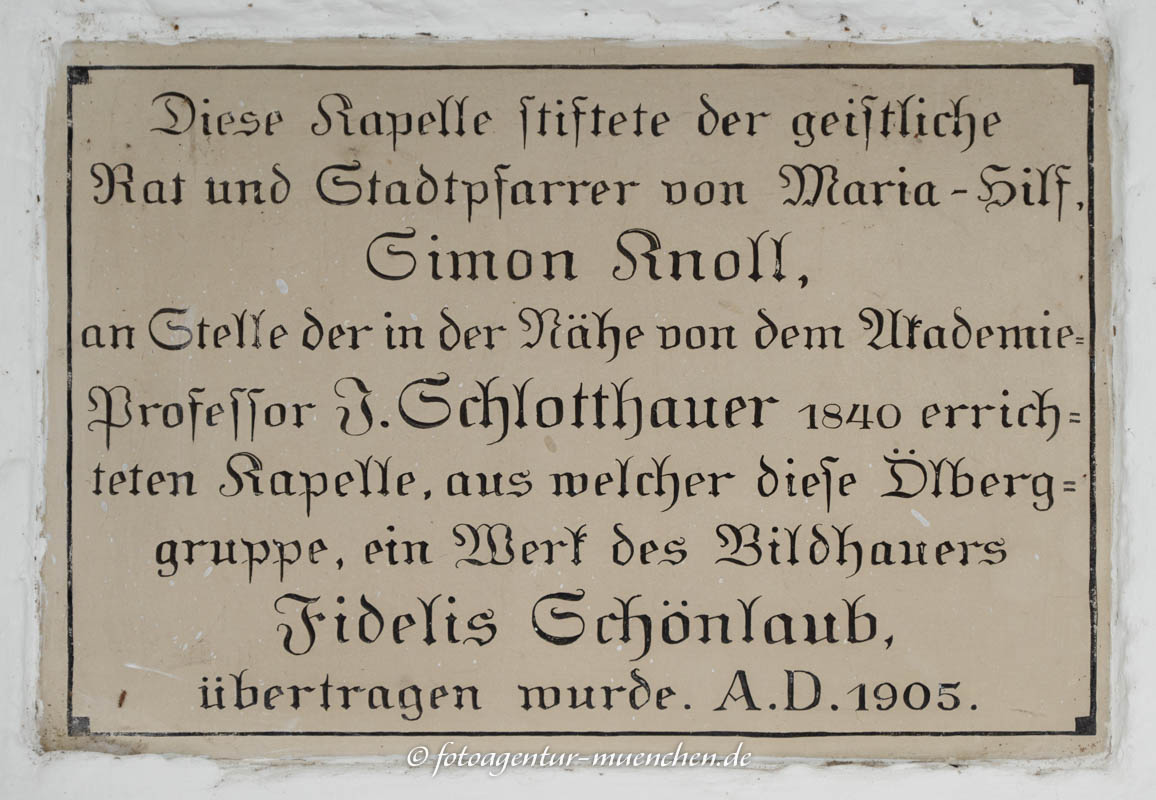 Diese Kapelle stiftete der geistliche
Rat und Stadtpfarrer von Maria-Hilf,
Simon Knoll,
an Stelle der in der Nähe von dem Akademie=
Professor J. Schlotthauer 1840 errich=
teten Kapelle, aus welcher diese Ölberg=
gruppe, ein Werk des Bildhauers
Fidelis Schönlaub,
übertragen wurde. A.D. 1905.
© fotoagentur-muenchen.de